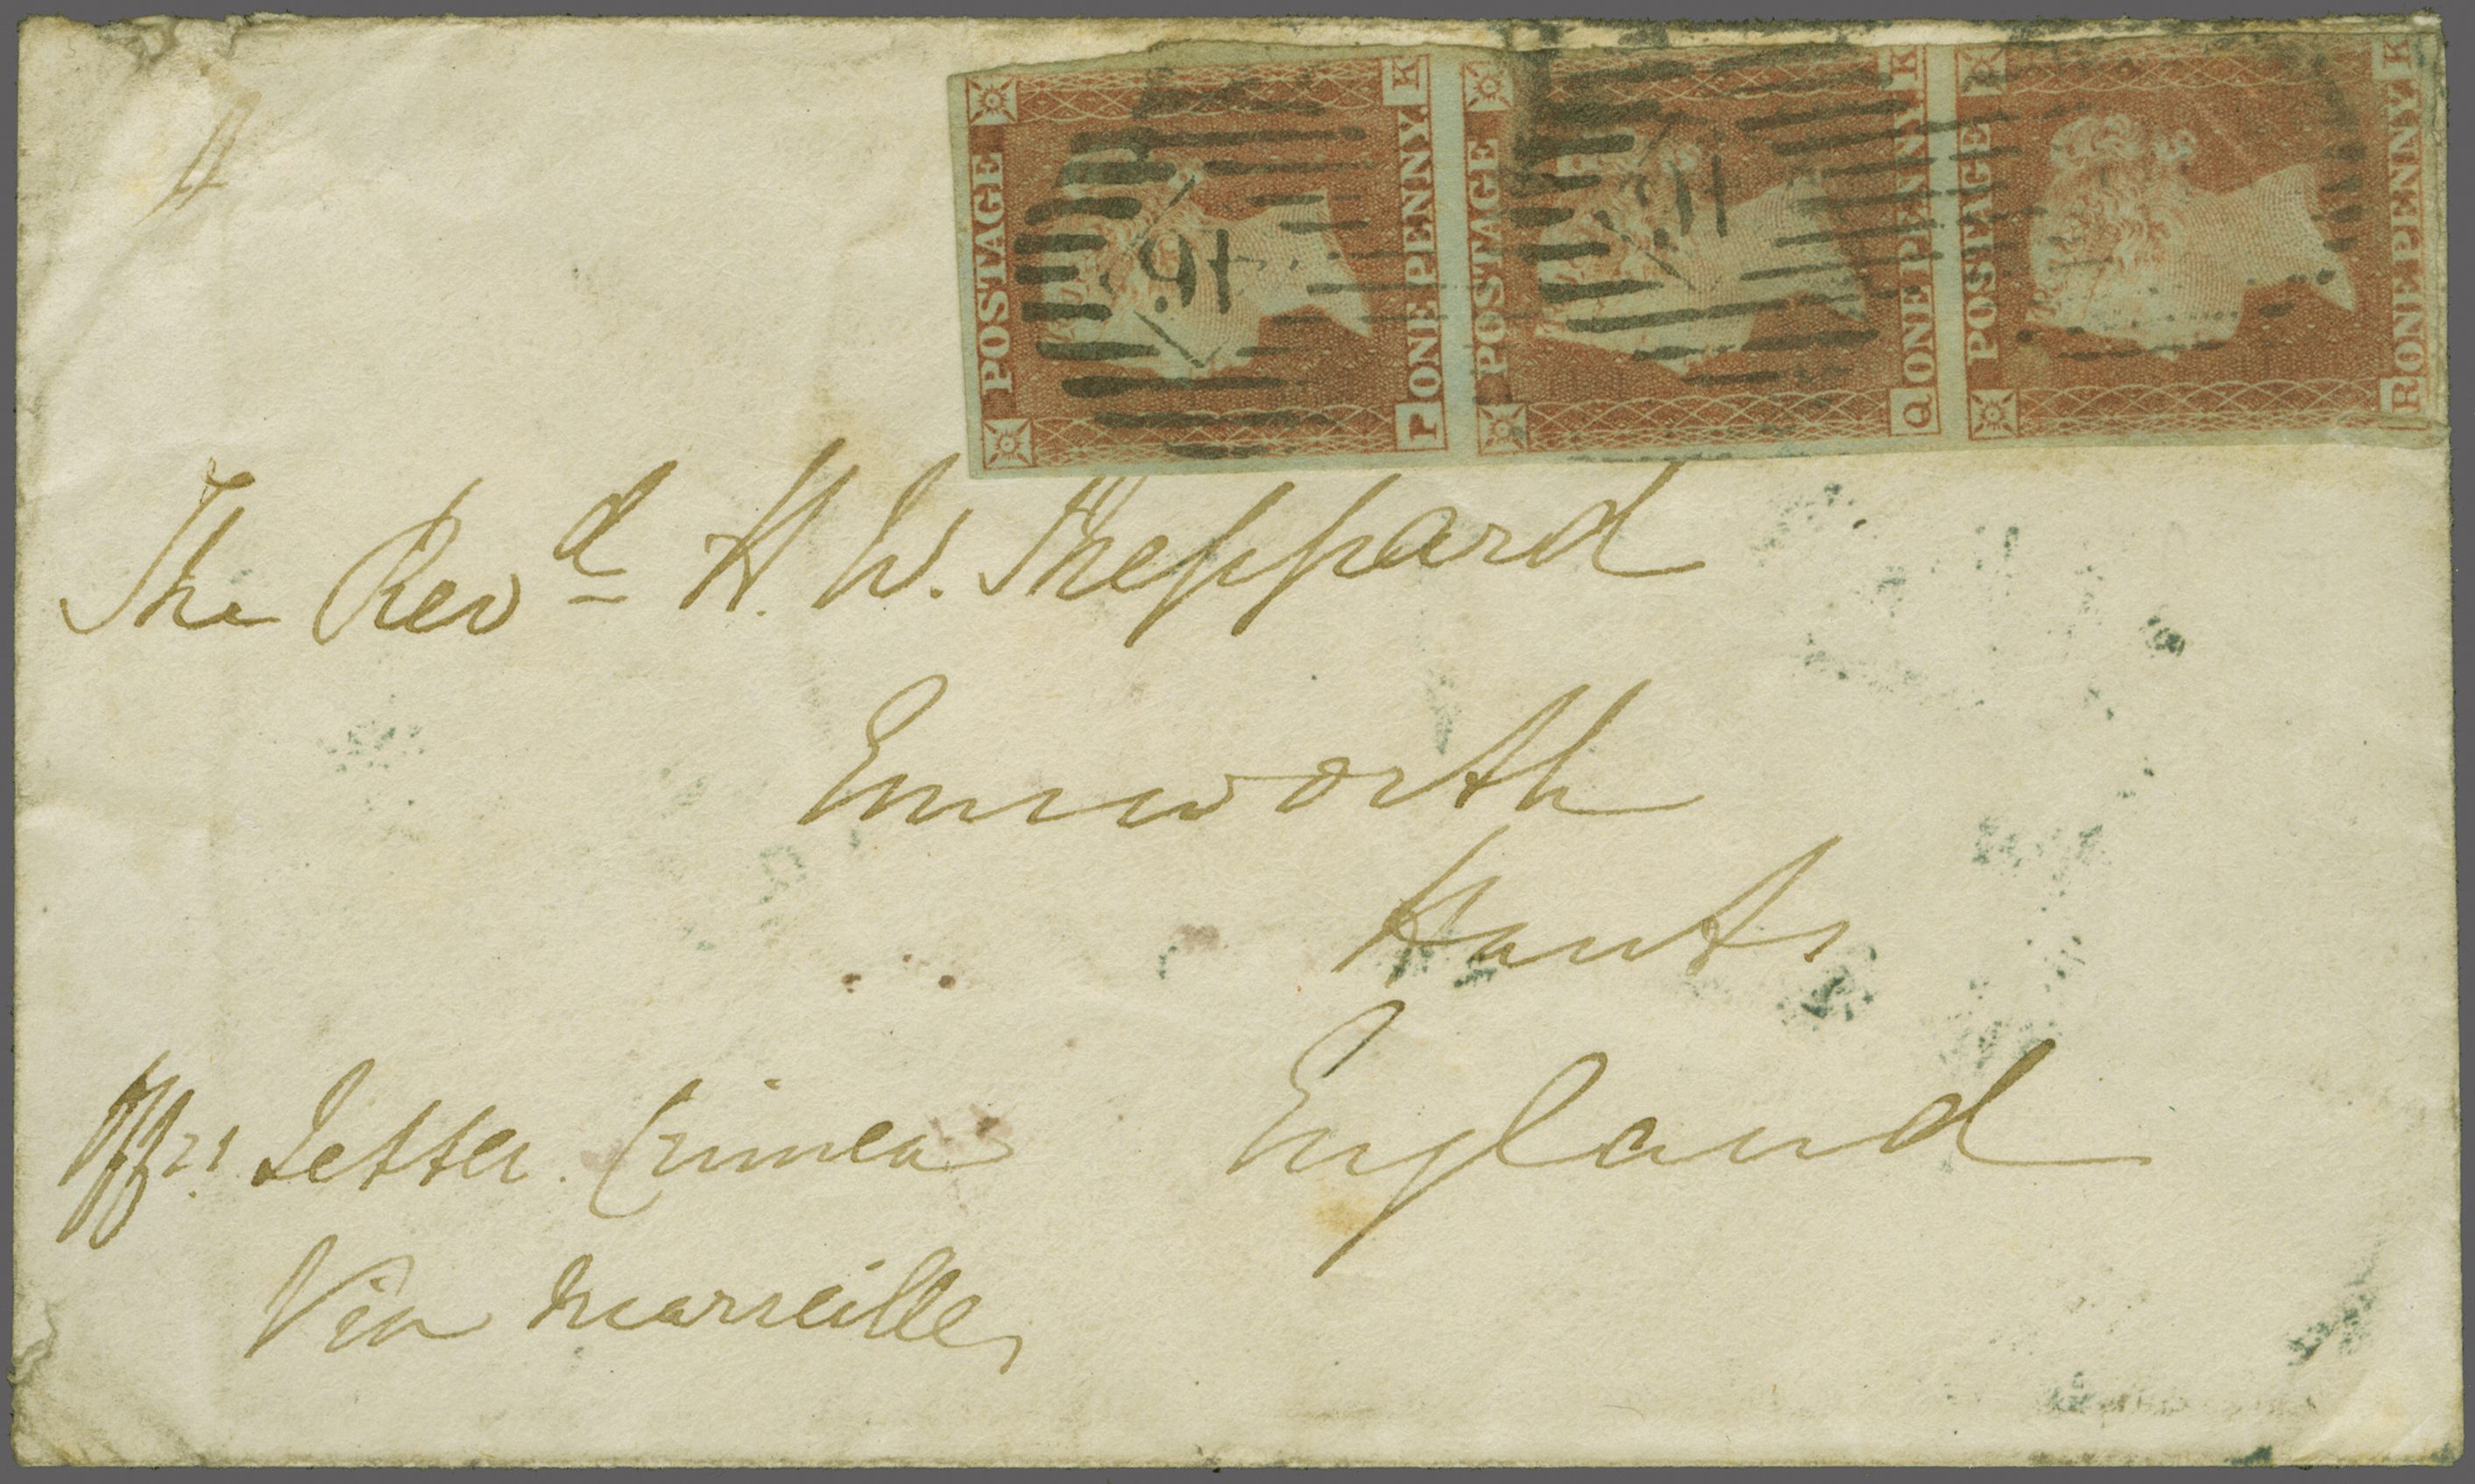 POSTAGE
K
P
ONE PENNY.
POSTAGE
K
Q
ONE PENNY.
POSTAGE
K
R
ONE PENNY.
The Revd H. W. Sheppard
Emsworth
Hants
England
Offrs. Letter. Crimea
Via Marseilles